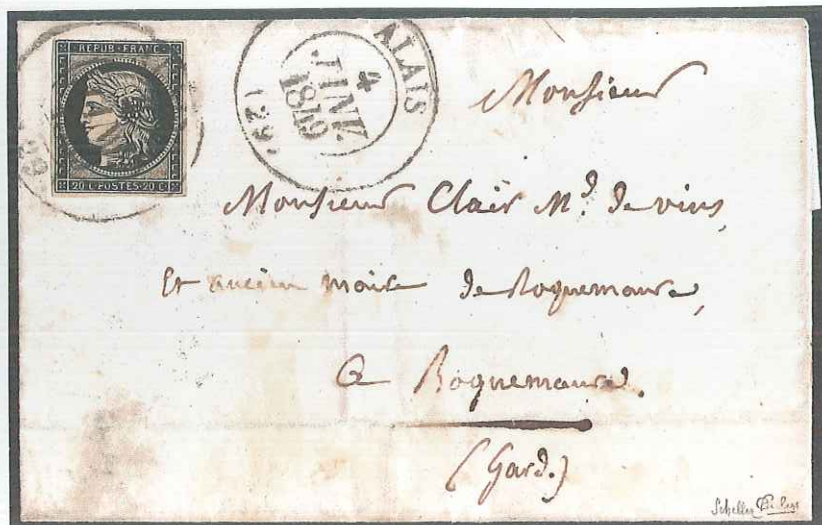 REPUB·FRANC·
20 C·POSTES·20 C·
ALAIS
4
JANV
1849
(29)
Monsieur
Monsieur Clair Md. de vins,
et ancien maire de Roquemaure,
a Roquemaure.
(Gard.)
Scheller